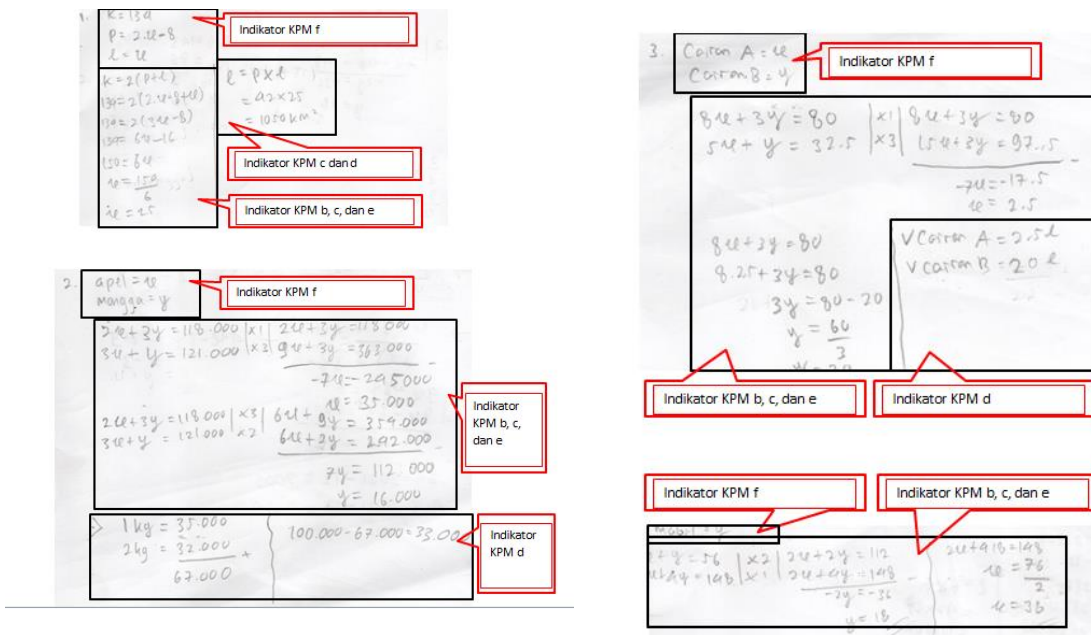 1. K = 134
P = 2x-8
l = x
Indikator KPM f
K = 2(p+l)
134=2(2x-8+x)
134=2(3x-8)
134= 6x-16
150=6x
x = 150
6
x = 25
l = p x l
= 42x25
= 1050 km²
Indikator KPM c dan d
Indikator KPM b, c, dan e
2. apel = x
mangga = y
Indikator KPM f
2x+3y =118.000 |x1| 2x+3y=118.000
3x+y = 121.000 |x3| 9x+3y =363.000 -
-7x=-245000
x= 35.000
2x+3y=118.000 |x3| 6x+9y = 354.000
3x+y = 121.000 |x2| 6x+2y = 242.000 -
7y = 112.000
y= 16.000
Indikator
KPM b, c,
dan e
1 kg = 35.000
2kg = 32.000 +
67.000
100.000-67.000=33.00
Indikator
KPM d
3. Cairan A = x
Cairan B = y
Indikator KPM f
8x+3y=80 |x1| 8x+3y =80
5x+y = 32.5 |x3| 15x+3y = 97.5 -
-7x=-17.5
x= 2.5
8x+3y=80
8.25+3y=80
3y=80-20
y = 60
3
V Cairan A = 2.5 l
V cairan B = 20 l
Indikator KPM b, c, dan e
Indikator KPM d
Indikator KPM f
Indikator KPM b, c, dan e
mobil = y
+y=56 |x2| 2x+2y = 112
+4y=148 |x1| 2x+4y=148 -
-2y=-36
y = 18
x = 76
2
x = 38